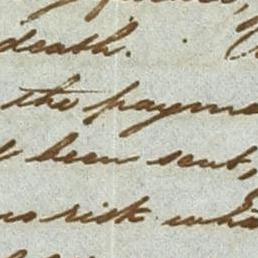 death.
the payme
been sent,
no risk wha